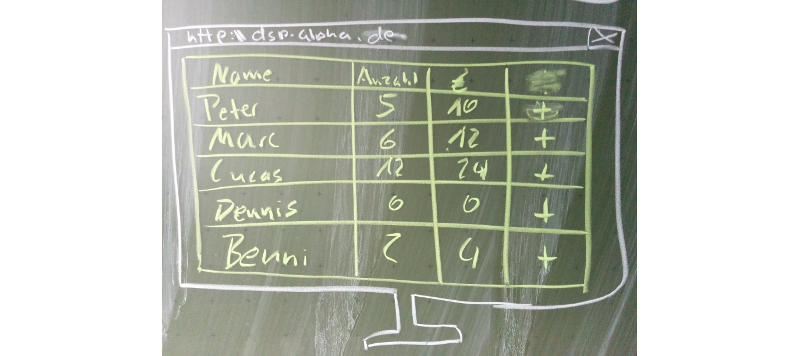 http:\\dsp.alpha.de X
Name Anzahl €
Peter 5 10 +
Marc 6 12 +
Lucas 12 24 +
Dennis 0 0 +
Benni 2 4 +